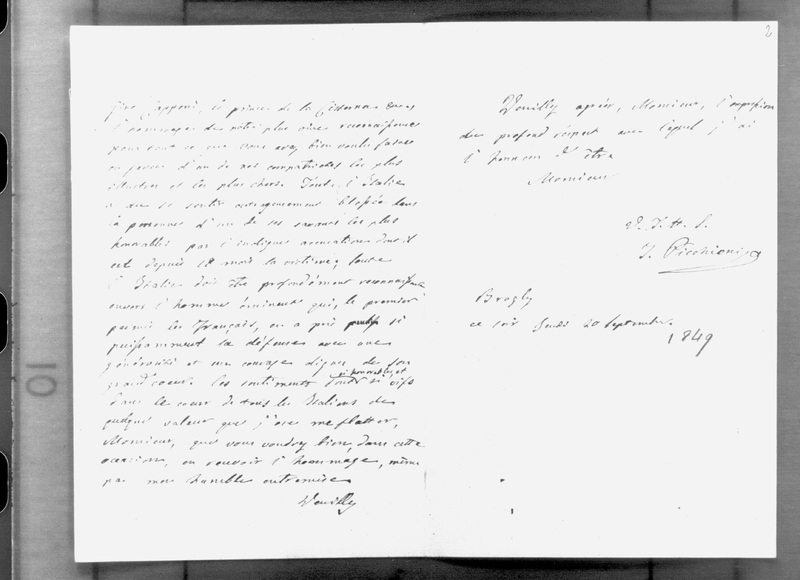 Gino Capponi, le prince de la Cisterna dans
l'hommage de notre plus vive reconnaissance
pour tout ce que vous avez bien voulu faire
en faveur d'un de nos compatriotes les plus
illustres et les plus chers. Toute l'Italie
a du se sentir outrageusement blessée dans
la personne d'un de ses savants les plus
honorables par l'indigne accusation dont il
est depuis 18 mois la victime; toute
l'Italie doit être profondément reconnaissante
envers l'homme éminent qui, le premier
parmi les Français, en a pris si
puissamment la défense avec une
générosité et un courage digne de son
grand cœur. Ces sentiments sont si honorables et si vifs
dans le cœur de tous les Italiens de
quelque valeur que j'ose me flatter,
Monsieur, que vous voudrez bien, dans cette
occasion, en recevoir l'hommage, même
par mon humble entremise
Veuillez
2
Veuillez agréer, Monsieur, l'expression
du profond respect avec lequel j'ai
l'honneur d'être
Monsieur
V. T. H. S.
J. Picchioni
Broglie
ce soir Jeudi 20 Septembre
1849
10